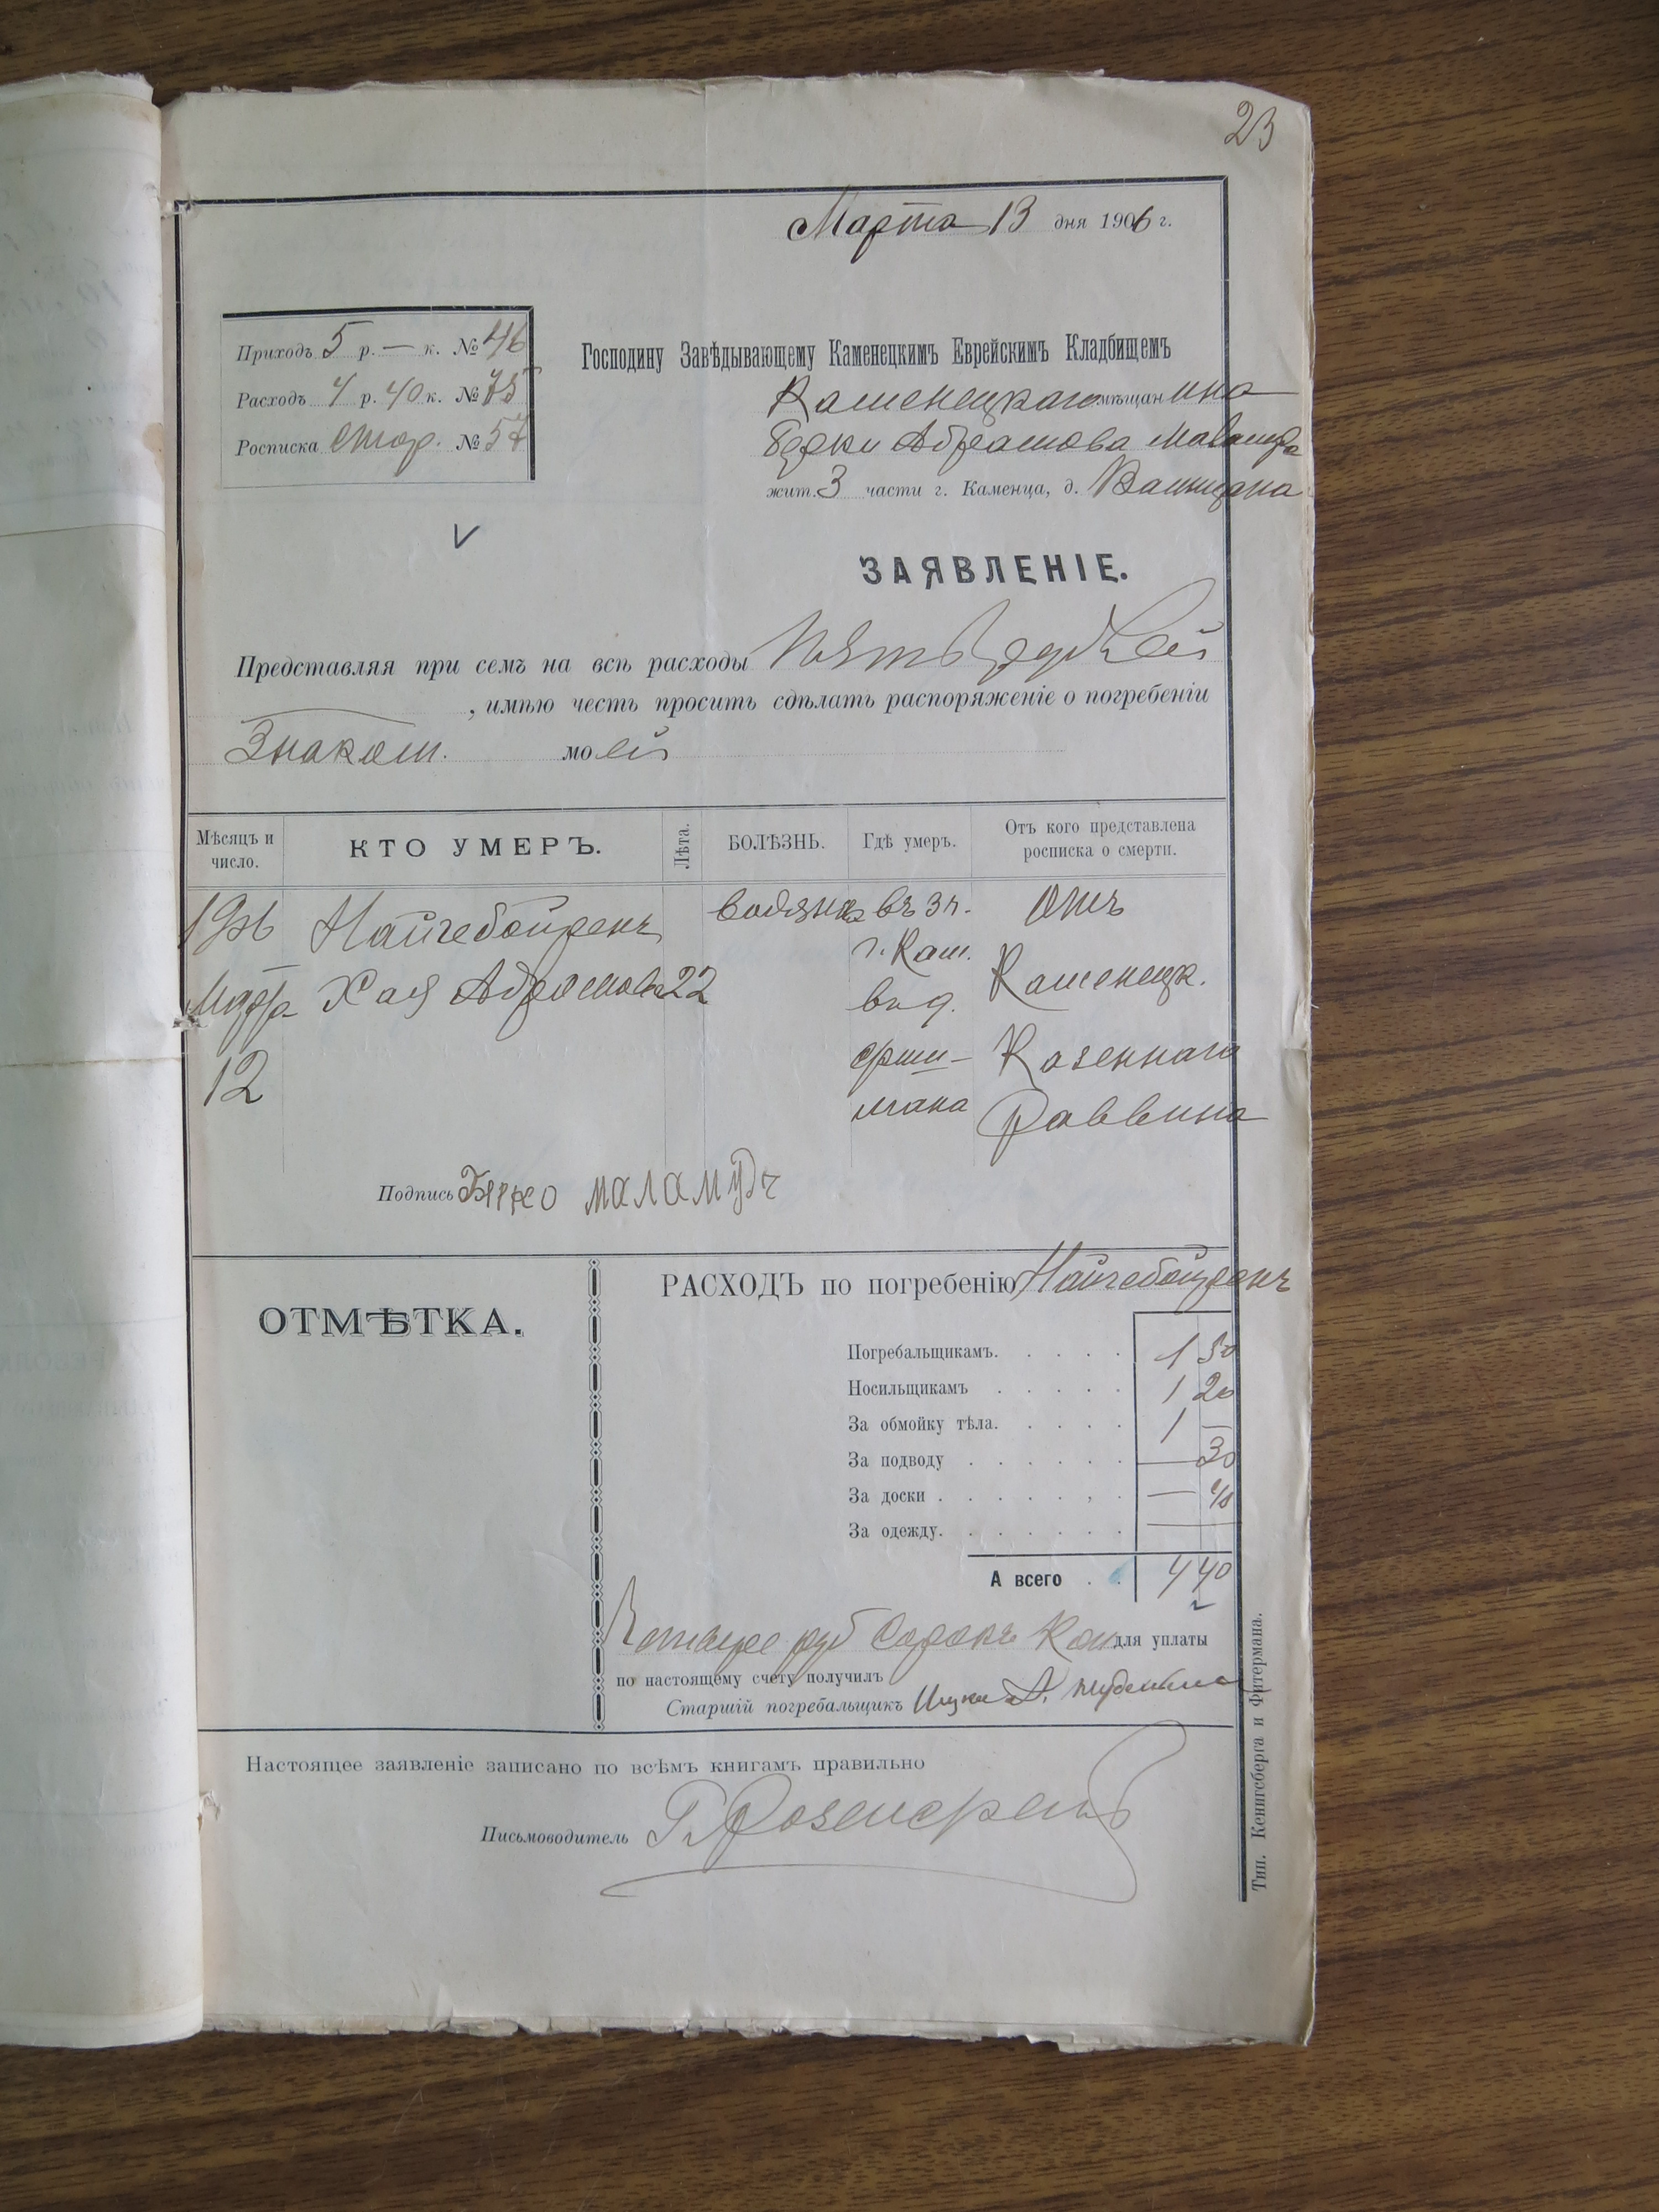 23
Марта 13 дня 1906 г.
Приходъ 5 р. — к. № 46
Расходъ 4 р. 40 к. № 75
Росписка стор. № 57
Господину Завѣдывающему Каменецкимъ Еврейскимъ Кладбищемъ
Каменецкаго мѣщанина
Берки Абрамова Маламуда
жит. 3 части г. Каменца, д. Вайнцана
ЗАЯВЛЕНІЕ.
Представляя при семъ на всѣ расходы Пять рублей
, имѣю честь просить сдѣлать распоряженіе о погребеніи
Знаком. моей
Мѣсяцъ и число.
КТО УМЕРЪ.
Лѣта.
БОЛѢЗНЬ.
Гдѣ умеръ.
Отъ кого представлена росписка о смерти.
1906 Найгебойренъ водянка въ 3 ч. Отъ
г. Кам.
Мар. Хая Абрамова 22 въ д. Каменецк.
12 Казеннаго
мана Раввина
Подпись Берко маламудъ
ОТМѢТКА.
РАСХОДЪ по погребенію Найгебойренъ
Погребальщикамъ. 1 50
Носильщикамъ 1 20
За обмойку тѣла. 1 —
За подводу — 30
За доски — 40
За одежду. —
А всего 4 40
Четыре руб сорокъ коп для уплаты
по настоящему счету получилъ
Старшій погребальщикъ Ицко А.
Настоящее заявленіе записано по всѣмъ книгамъ правильно
Письмоводитель Г. Розенкранцъ
Тип. Кенигсберга и Фитермана.